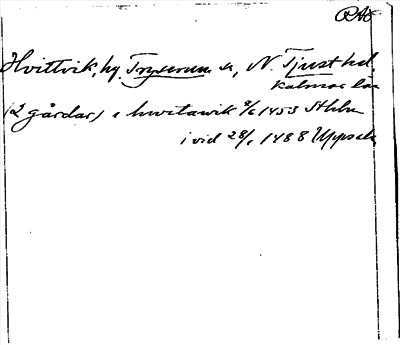 RAp
Hvittvik, by, Tryserum sn, N. Tjust hd,
Kalmar län
(2 gårdar) i hwitawik 9/6 1453 Sthlm
i vid 28/1 1488 Uppsala